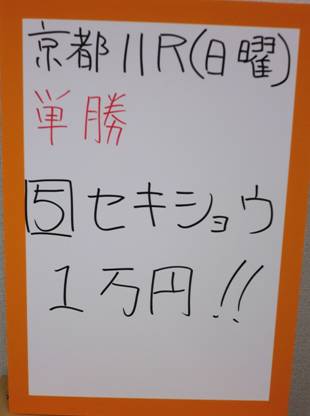 京都11R(日曜)
単勝
5セキショウ
1万円!!